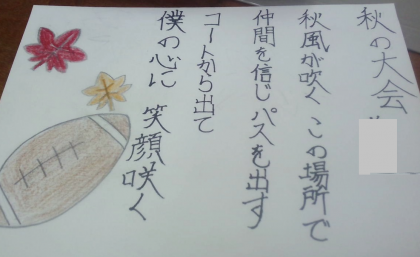 秋の大会
秋風が吹く この場所で
仲間を信じ パスを出す
コートから出て
僕の心に 笑顔咲く